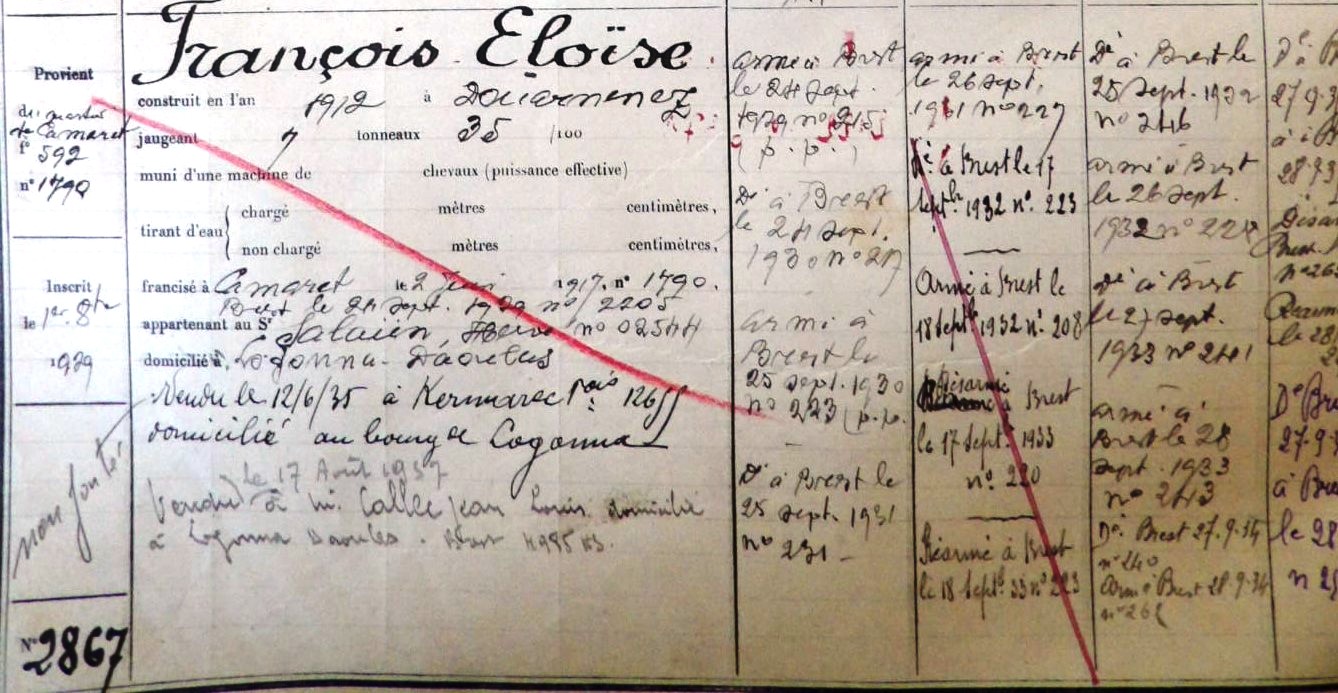 Provient
du quartier
de Camaret
f° 592
n° 1790
Inscrit
le 1er 8bre
1929
non jouté
N° 2867
François Eloïse.
construit en l'an 1912 à Douarnenez
jaugeant 7 tonneaux 35 /100
muni d'une machine de chevaux (puissance effective)
tirant d'eau
chargé mètres centimètres,
non chargé mètres centimètres,
francisé à Camaret le 2 Juin 1917, n° 1790.
Brest le 24 sept. 1929 n° 2205
appartenant au Sr Salaün, Hervé n° 02544
domicilié à Logonna-Daoulas
Vendu le 12/6/35 à Kermarec 126
domicilié au bourg de Logonna
Le 17 Août 1937
Vendu à M. Calle Jean Louis domicilié
à Logonna Daoulas. Brest
armé à Brest
le 24 sept.
1929 n° 215
(p.p.)
Dé à Brest
le 24 sept.
1930 n° 217
armé à
Brest le
25 sept. 1930
n° 223 (p.p.
Dé à Brest le
25 sept. 1931
n° 231 -
armé à Brest
le 26 sept.
1931 n° 227
Dé à Brest le 17
septbre 1932 n° 223
Armé à Brest le
18 septbre 1932 n° 208
Désarmé
à Brest
le 17 septbre 1933
n° 220
Réarmé à Brest
le 18 septbre 33 n° 223
Dé à Brest le
25 sept. 1932
n° 246
armé à Brest
le 26 sept.
1932 n° 224
Dé à Brest
le 27 sept.
1933 n° 241
armé à
Brest le 28
sept. 1933
n° 243
Dé à Brest 27.9.34
n° 240
armé à Brest 28.9.34
n° 262
Dé à B
27.9.3
à B
28.9.3
Désa
Brest
n° 26
le 28
Dé Br
27.9.
à Br
le 28
n 2